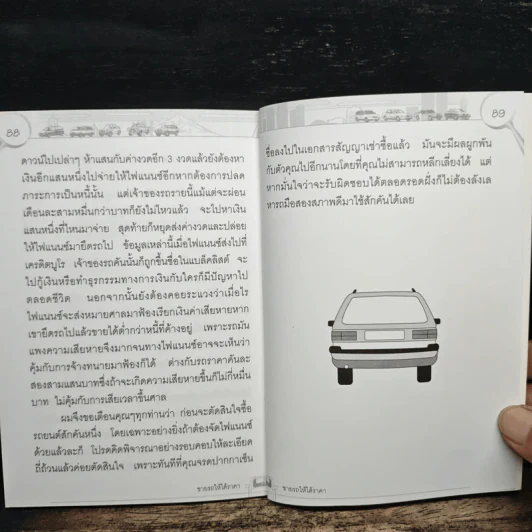 88
ดาวน์ไปเปล่าๆ ห้าแสนกับค่างวดอีก 3 งวดแล้วยังต้องหา
เงินอีกแสนหนึ่งไปจ่ายให้ไฟแนนซ์อีกหากต้องการปลด
ภาระการเป็นหนี้นั้น แต่เจ้าของรถรายนี้แม้แต่จะผ่อน
เดือนละสามหมื่นกว่าบาทก็ยังไม่ไหวแล้ว จะไปหาเงิน
แสนหนึ่งที่ไหนมาจ่าย สุดท้ายก็หยุดส่งค่างวดและปล่อย
ให้ไฟแนนซ์มายึดรถไป ข้อมูลเหล่านี้เมื่อไฟแนนซ์ส่งไปที่
เครดิตบูโร เจ้าของรถคันนั้นก็ถูกขึ้นชื่อในแบล็คลิสต์ จะ
ไปกู้เงินหรือทำธุรกรรมทางการเงินกับใครก็มีปัญหาไป
ตลอดชีวิต นอกจากนั้นยังต้องคอยระแวงว่าเมื่อไร
ไฟแนนซ์จะส่งหมายศาลมาฟ้องเรียกเงินค่าเสียหายหาก
เขายึดรถไปแล้วขายได้ต่ำกว่าหนี้ที่ค้างอยู่ เพราะรถมัน
แพงความเสียหายจึงมากจนทางไฟแนนซ์อาจจะเห็นว่า
คุ้มกับการจ้างทนายมาฟ้องก็ได้ ต่างกับรถราคาคันละ
สองสามแสนบาทซึ่งถ้าจะเกิดความเสียหายขึ้นก็ไม่กี่หมื่น
บาท ไม่คุ้มกับการเสียเวลาขึ้นศาล
ผมจึงขอเตือนคุณๆทุกท่านว่า ก่อนจะตัดสินใจซื้อ
รถยนต์สักคันหนึ่ง โดยเฉพาะอย่างยิ่งถ้าต้องจัดไฟแนนซ์
ด้วยแล้วละก็ โปรดคิดพิจารณาอย่างรอบคอบให้ละเอียด
ถี่ถ้วนแล้วค่อยตัดสินใจ เพราะทันทีที่คุณจรดปากกาเซ็น
ขายรถให้ได้ราคา
89
ชื่อลงไปในเอกสารสัญญาเช่าซื้อแล้ว มันจะมีผลผูกพัน
กับตัวคุณไปอีกนานโดยที่คุณไม่สามารถหลีกเลี่ยงได้ แต่
หากมั่นใจว่าจะรับผิดชอบได้ตลอดรอดฝั่งก็ไม่ต้องลังเล
หารถมือสองสภาพดีมาใช้สักคันได้เลย
ขายรถให้ได้ราคา